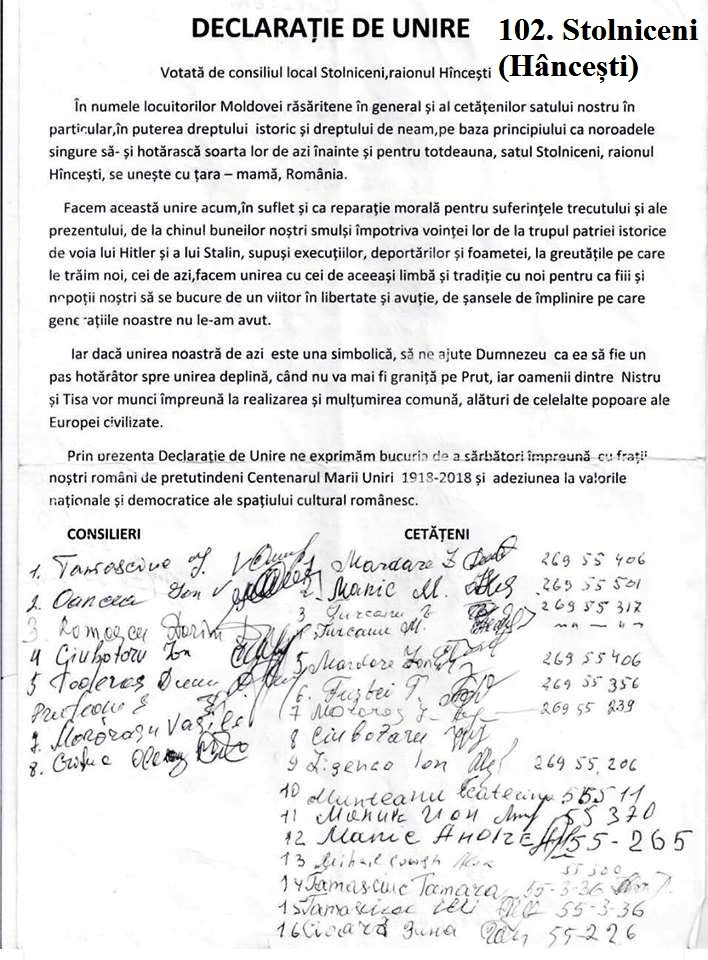 DECLARAȚIE DE UNIRE
102. Stolniceni
(Hâncești)
Votată de consiliul local Stolniceni,raionul Hîncești
În numele locuitorilor Moldovei răsăritene în general și al cetățenilor satului nostru în
particular,în puterea dreptului istoric și dreptului de neam,pe baza principiului ca noroadele
singure să- și hotărască soarta lor de azi înainte și pentru totdeauna, satul Stolniceni, raionul
Hîncești, se unește cu țara – mamă, România.
Facem această unire acum,în suflet și ca reparație morală pentru suferințele trecutului și ale
prezentului, de la chinul buneilor noștri smulși împotriva voinței lor de la trupul patriei istorice
de voia lui Hitler și a lui Stalin, supuși execuțiilor, deportărilor și foametei, la greutățile pe care
le trăim noi, cei de azi,facem unirea cu cei de aceeași limbă și tradiție cu noi pentru ca fiii și
nepoții noștri să se bucure de un viitor în libertate și avuție, de șansele de împlinire pe care
generațiile noastre nu le-am avut.
Iar dacă unirea noastră de azi este una simbolică, să ne ajute Dumnezeu ca ea să fie un
pas hotărâtor spre unirea deplină, când nu va mai fi graniță pe Prut, iar oamenii dintre Nistru
și Tisa vor munci împreună la realizarea și mulțumirea comună, alături de celelalte popoare ale
Europei civilizate.
Prin prezenta Declarație de Unire ne exprimăm bucuria de a sărbători împreună cu frații
noștri români de pretutindeni Centenarul Marii Uniri 1918-2018 și adeziunea la valorile
naționale și democratice ale spațiului cultural românesc.
CONSILIERI
1. Tamasciuc I.
2. Oancea Ion
3
4 Ciubotaru Ion
5 Toderaș
7. Vasile
8.
CETĂȚENI
1 Mardare 269 55 406
2 Manic M. 269 55 501
3 Țurcanu 269 55 317
Țurcanu M.
5 Mardare 269 55 406
6. Fuștei T. 269 55 356
7 269 55 239
8 Ciubotaru
9 Țigenco Ion 269 55, 206
10 Munteanu Ecaterina 555 11
11 Ion 55 370
12 Manic Andrei 55-265
13 Mihail
14 Tamasciuc Tamara 55-3-36
15 Tamasciuc 55-3-36
16 Cioară Zina 55-226